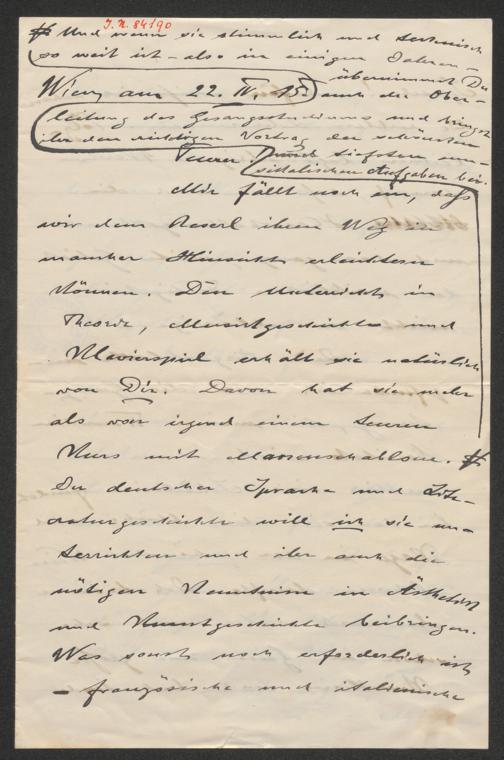 J.N. 84190
# Und wenn sie stimmlich und technisch
so weit ist – also in einigen Jahren –
übernimmst Du
Wien, am 22. IV. 15.
auch die Ober-
leitung des Gesangsstudiums und bringst
ihr den richtigen Vortrag der schönsten
und tiefsten mu-
sikalischen Aufgaben bei.
Mir fällt noch ein, daß
wir dem Reserl ihren Weg in
mancher Hinsicht erleichtern
können. Den Unterricht in
Theorie, Musikgeschichte und
Klavierspiel erhält sie natürlich
von Dir. Davon hat sie mehr
als von irgend einem teuren
Kurs mit Massenschablone. #
In deutscher Sprache und Lite-
raturgeschichte will ich sie un-
terrichten und ihr auch die
nötigen Kenntnisse in Ästhetik
und Kunstgeschichte beibringen.
Was sonst noch erforderlich ist
– französische und italienische